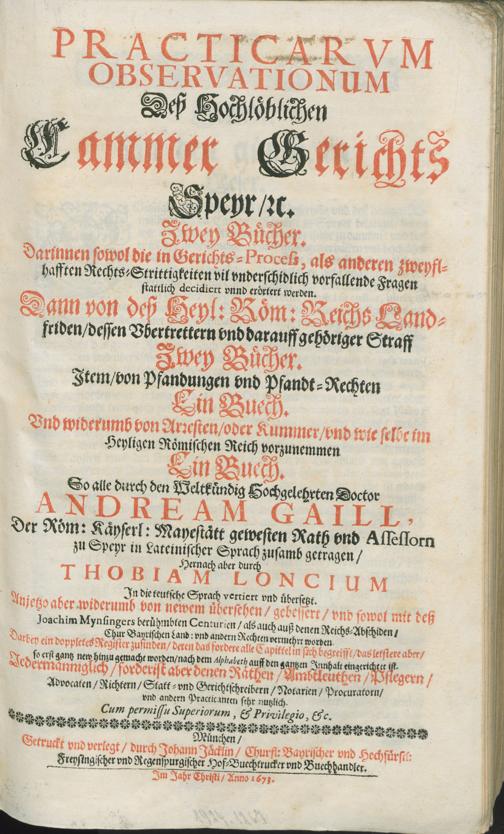 PRACTICARVM
OBSERVATIONUM
Deß Hochlöblichen
Cammer Gerichts
Speyr/ꝛc.
Zwey Bücher.
Darinnen sowol die in Gerichts-Process, als anderen zweyfl-
hafften Rechts-Strittigkeiten vil vnderschidlich vorfallende Fragen
stattlich decidiert vnnd erörtert werden.
Dann von deß Heyl: Röm: Reichs Land-
friden/dessen Vbertrettern vnd darauff gehöriger Straff
Zwey Bücher.
Item/von Pfandungen vnd Pfandt-Rechten
Ein Buech.
Vnd widerumb von Arresten/oder Kummer/vnd wie selbe im
Heyligen Römischen Reich vorzunemmen
Ein Buech.
So alle durch den Weltkündig Hochgelehrten Doctor
ANDREAM GAILL,
Der Röm: Käyserl: Mayestätt gewesten Rath vnd Assessorn
zu Speyr in Lateinischer Sprach zusamb getragen/
Hernach aber durch
THOBIAM LONCIUM
In die teutsche Sprach vertiert vnd übersetzt.
Anjetzo aber widerumb von newem übersehen/ gebessert/ vnd sowol mit deß
Joachim Mynsingers berühmbten Centurien/ als auch auß denen Reichs-Abschiden/
Chur Bayrischen Land: vnd andern Rechten vermehrt worden.
Darbey ein doppletes Register zufinden/ deren das fordere alle Capittel in sich begreifft/ das letstere aber/
so erst gantz new hinzu gemacht worden/ nach dem Alphabeth auff den gantzen Innhalt eingerichtet ist.
Jedermänniglich/ forderist aber denen Räthen/ Ambtleuthen/ Pflegern/
Advocaten/ Richtern/ Statt- vnd Gerichtschreibern/ Notarien/ Procuratorn/
vnd andern Practicanten sehr nutzlich.
Cum permissu Superiorum, & Privilegio, &c.
München/
Getruckt vnd verlegt/ durch Johann Jäcklin/ Churfl: Bayrischer vnd Hochfürstl:
Freysingischer vnd Regenspurgischer Hof-Buechtrucker vnd Buechhandler.
Im Jahr Christi/ Anno 1673.